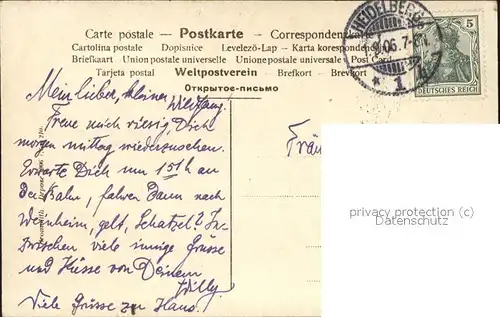 Carte postale — Postkarte — Correspondenzkarte
Cartolina postale Dopisnice Levelező-Lap — Karta korespondencyjna
Briefkaart Union postale universelle Unione postale universale Post Card
Tarjeta postal Weltpostverein — Brefkort — Brevkort
Открытое-письмо
HEIDELBERG
06. 7-8
* 1
5
DEUTSCHES REICH
Mein lieber, kleiner Wildfang.
Freue mich riesig, Dich
morgen mittag wiederzusehen.
Erwarte Dich um 151 h an
der Bahn, fahren dann nach
Weinheim, gelt, Schatzel? In-
zwischen viele innige Grüsse
und Küsse von Deinem
Willy.
Viele Grüsse zu Haus!
Fräu
privacy protection (c)
DATENSCHUTZ (c)